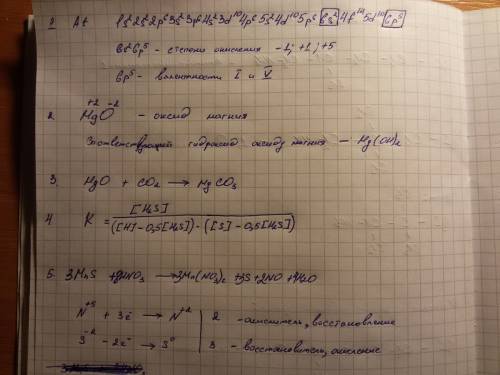 1 At 1s² 2s² 2p⁶ 3s² 3p⁶ 4s² 3d¹⁰ 4p⁶ 5s² 4d¹⁰ 5p⁶ 6s² 4f¹⁴ 5d¹⁰ 6p⁵
6s² 6p⁵ - степени окисления -1; +1; +5
6p⁵ - валентности I и V
2. +2 -2
MgO - оксид магния
гидроксид оксиду магния — Mg(OH)₂
3. MgO + CO₂ → MgCO₃
4 K = [H₂S] / ([H] - 0,5[H₂S]) · ([S] - 0,5[H₂S])
5. 3MnS + 8HNO₃ → 3Mn(NO₃)₂ + 3S + 2NO + 4H₂O
N⁺⁵ + 3e⁻ → N⁺² | 2 - окислитель, восстановление
S⁻² - 2e⁻ → S⁰ | 3 - восстановитель, окисление